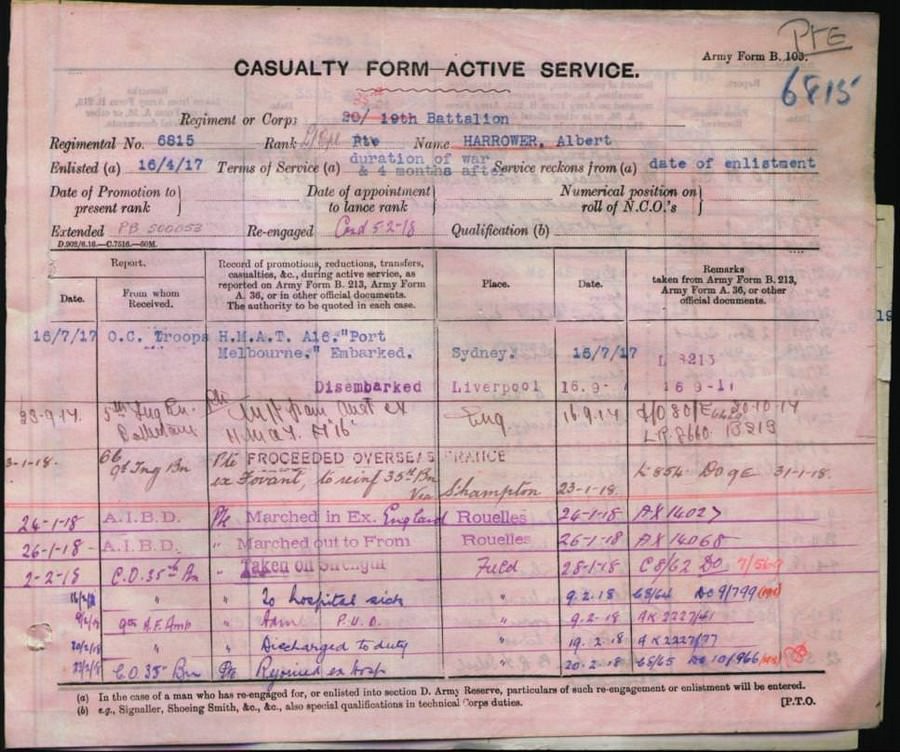 Pte
Army Form B. 103.
6815
CASUALTY FORM—ACTIVE SERVICE.
Regiment or Corps 20/ 19th Battalion
Regimental No. 6815 Rank Pte Name HARROWER, Albert
Enlisted (a) 16/4/17 Terms of Service (a) duration of war & 4 months after Service reckons from (a) date of enlistment
Date of Promotion to present rank } Date of appointment to lance rank } Numerical position on roll of N.C.O.'s }
Extended PB 500053 Re-engaged Cond 5-2-18 Qualification (b)
D.902/6.16.—C.7516.—50M.
Report. Record of promotions, reductions, transfers, casualties, &c., during active service, as reported on Army Form B. 213, Army Form A. 36, or in other official documents. The authority to be quoted in each case. Place. Date. Remarks taken from Army Form B. 213, Army Form A. 36, or other official documents.
Date. From whom Received.
16/7/17 O.C. Troops H.M.A.T. A16."Port Melbourne." Embarked. Sydney. 16/7/17 L 8213
Disembarked Liverpool 16.9-
5th Bn. Pte ex Eng 16.9.17 30-10-17
3-1-18. Pte PROCEEDED OVERSEAS FRANCE
ex Fovant, to reinf 35th Bn Via S'hampton 23-1-18. 31-1-18.
24-1-18 A.I.B.D. Pte Marched in Ex. England Rouelles 24-1-18 AX14027
26-1-18 A.I.B.D. " Marched out to Front Rouelles 26-1-18 AX14068
2-2-18 C.O. 35th Bn " Taken on Strength Field 28-1-18 C8/62 DO
" " To hospital sick " 9.2.18 68/64 DO 9/799
9th A.F.Amb " Adm P.U.O. " 9-2-18 AK2227/41
" " Discharged to duty " 19.2.18 AK2227/77
C.O. 35 Bn Pte Rejoined ex hosp " 20.2.18 68/65 DO 10/966
(a) In the case of a man who has re-engaged for, or enlisted into section D. Army Reserve, particulars of such re-engagement or enlistment will be entered.
(b) e.g., Signaller, Shoeing Smith, &c., &c., also special qualifications in technical Corps duties. [P.T.O.